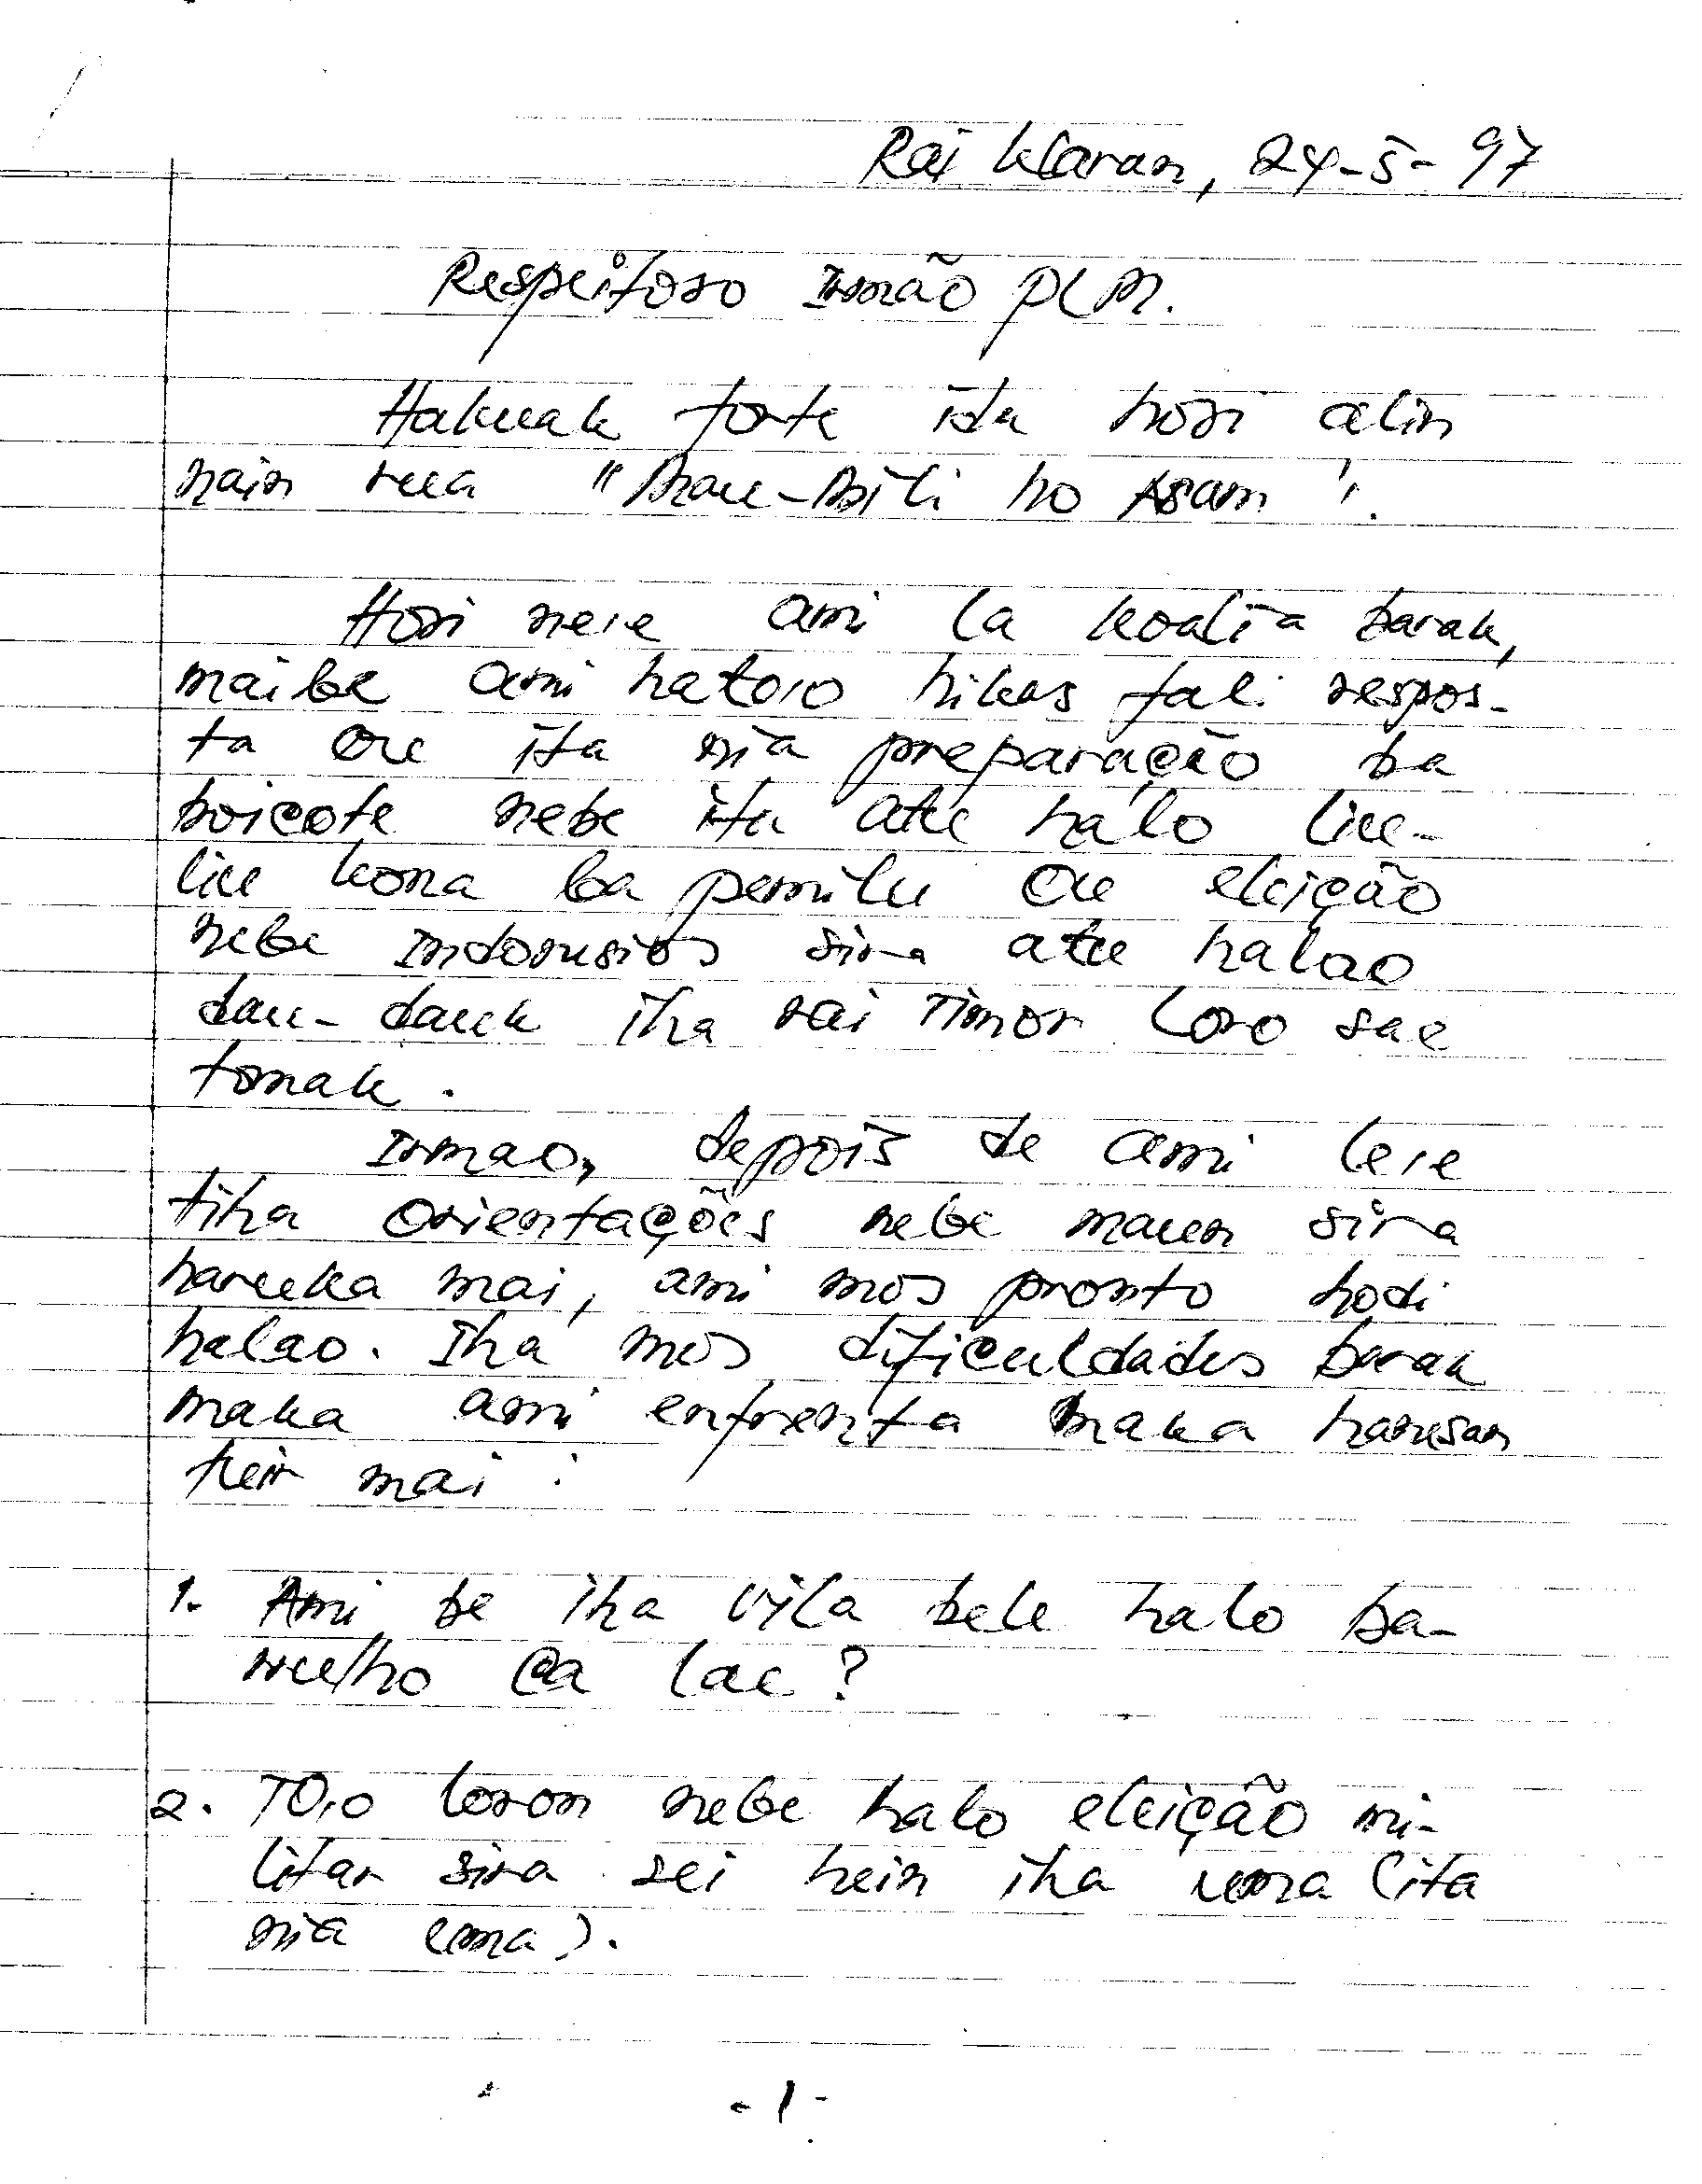 Rai klaran, 24-5-97
Respeitoso Irmão PLM.
Hakuak forte ida hosi alin
nain rua "Mau-Bili ho Asam".
Hosi ne'e ami la koalia barak,
maibe ami hato'o hikas fali respos-
ta ou ita nia preparação ba
boicote nebe ita atu halo liu-
liu kona ba pemilu ou eleição
nebe Indonesios sira atu halao
dau-dauk iha rai Timor Loro sae
tomak.
Irmao, depois de ami le'e
tiha orientações nebe maun sira
haruka mai, ami mos pronto hodi
halao. Iha mos dificuldades barak
maka ami enfrenta maka hanesan
tuir mai:
1. Ami be iha vila bele halo ba-
rulho ca lae?
2. To'o loron nebe halo eleição mi-
litar sira sei hein iha uma (ita
nia uma).
-1-